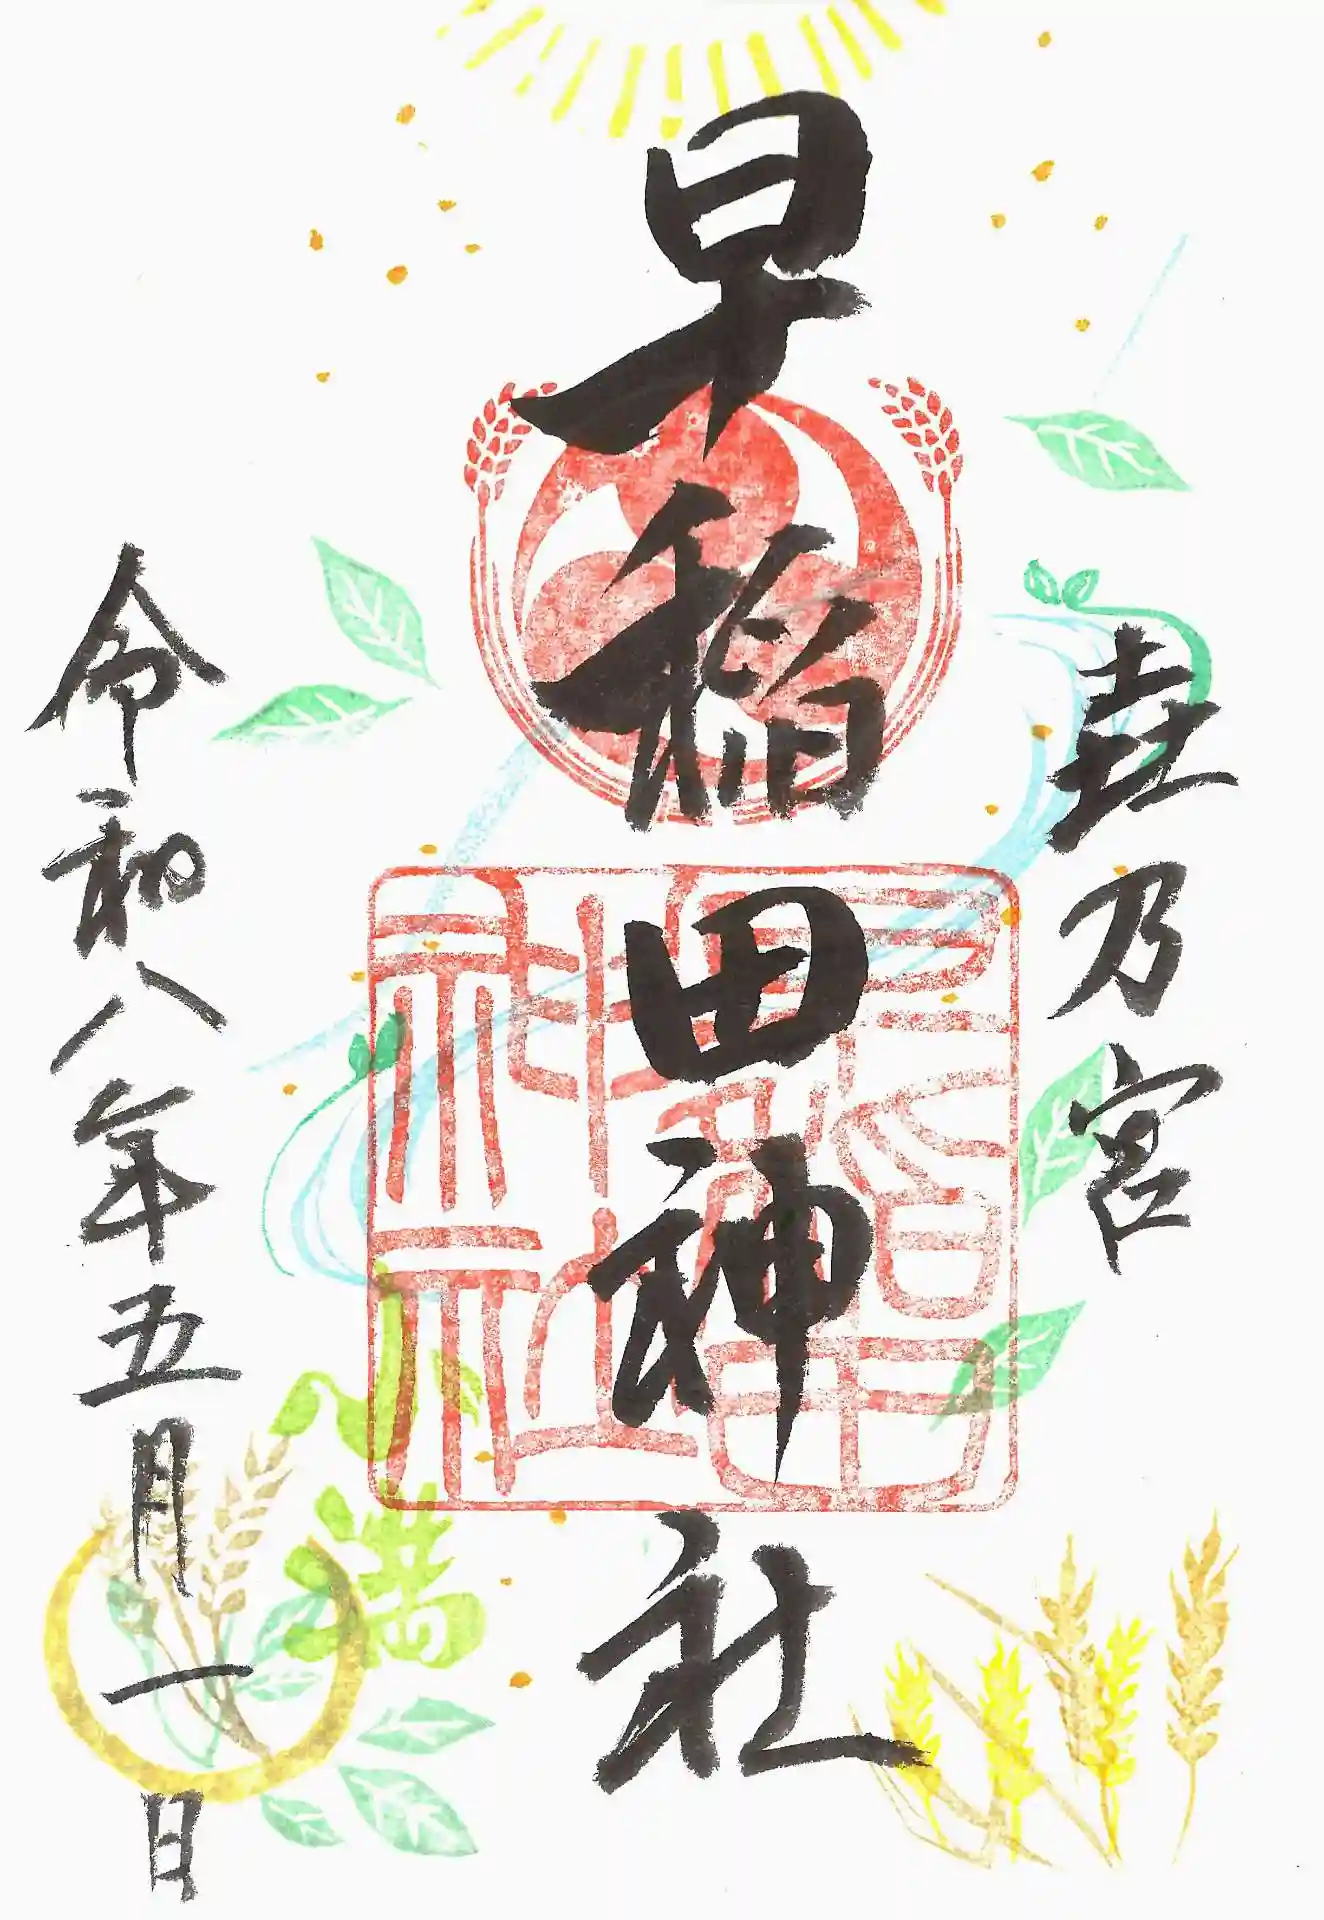 乃宮
早稲田神社
早稲田神社
小満
令和八年五月一日